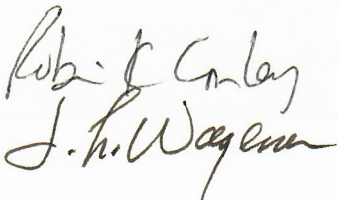 Robin K Conley
J. L. Wagener